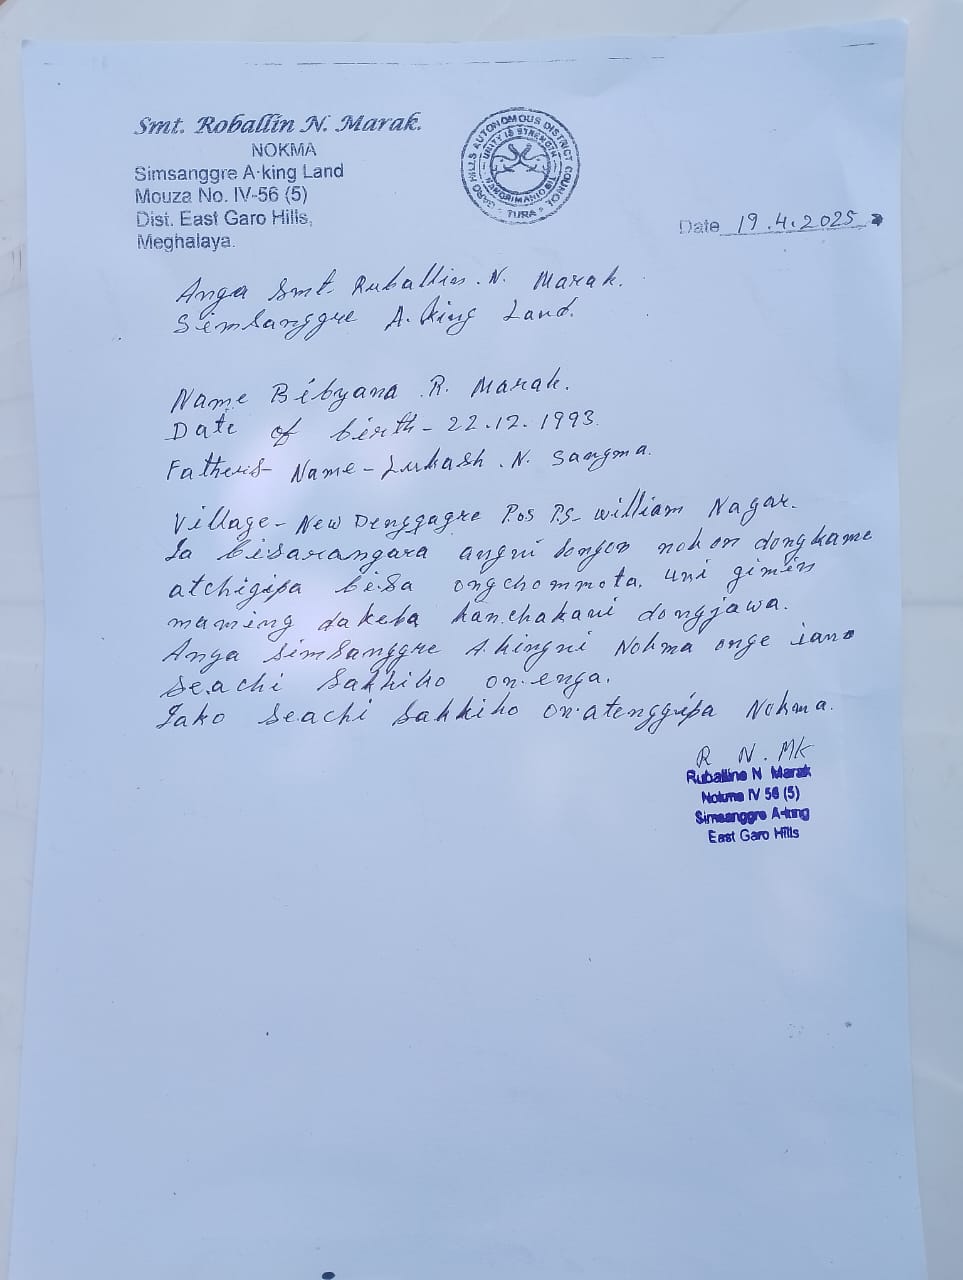 Smt. Roballin N. Marak.
NOKMA
Simsanggre A·king Land
Mouza No. IV-56 (5)
Dist. East Garo Hills,
Meghalaya.
GARO HILLS AUTONOMOUS DISTRICT COUNCIL
UNITY IS STRENGTH
TURA
Date 19.4.2025
Anga Smt. Ruballin. N. Marak.
Simsanggre A. king Land.
Name Bibyana R. Marak.
Date of birth - 22.12.1993.
Father's Name - Lukash. N. Sangma.
Village - New Denggagre P.os P.S- William Nagar.
Ia bisarangara angni songon nokon dongkame
atchigipa bi.sa ongchommota. Uni gimin
maming dakeba kanchakani dongjawa.
Anga Simsanggre A.kingni Nokma onge iano
se.achi sakkiko on.enga.
Iako se.achi sakkiko on.atenggipa Nokma.
R N. Mk
Ruballine N Marak
Nokma IV 56 (5)
Simsanggre A-king
East Garo Hills